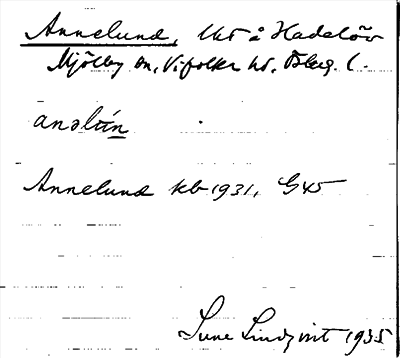 Annelund, Ut å Hadelöv
Mjölby sn, Vifolka hd. Österg. l.
anəlún
Annelund kb 1931, G45
Sune Lindqvist 1935